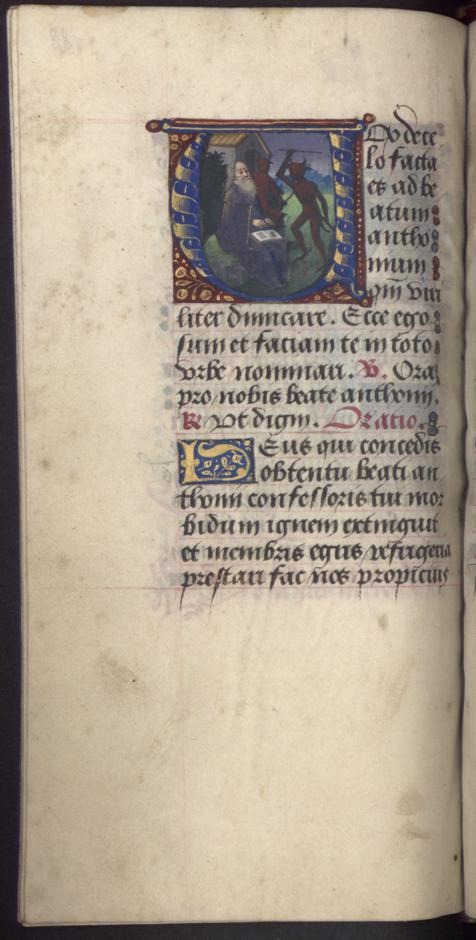 Ox dece
lo facta
est ad be
atum
antho
nium
qm̄ viri
liter dimicare. Ecce ego
sum et faciam te in toto
orbe nominari. V. Ora
pro nobis beate anthoni.
R Vt digni. Oratio.
DEus qui concedis
obtentu beati an
thoni confessoris tui mor
bidum ignem extingui
et membris egris refrigeria
prestari fac nos propicius